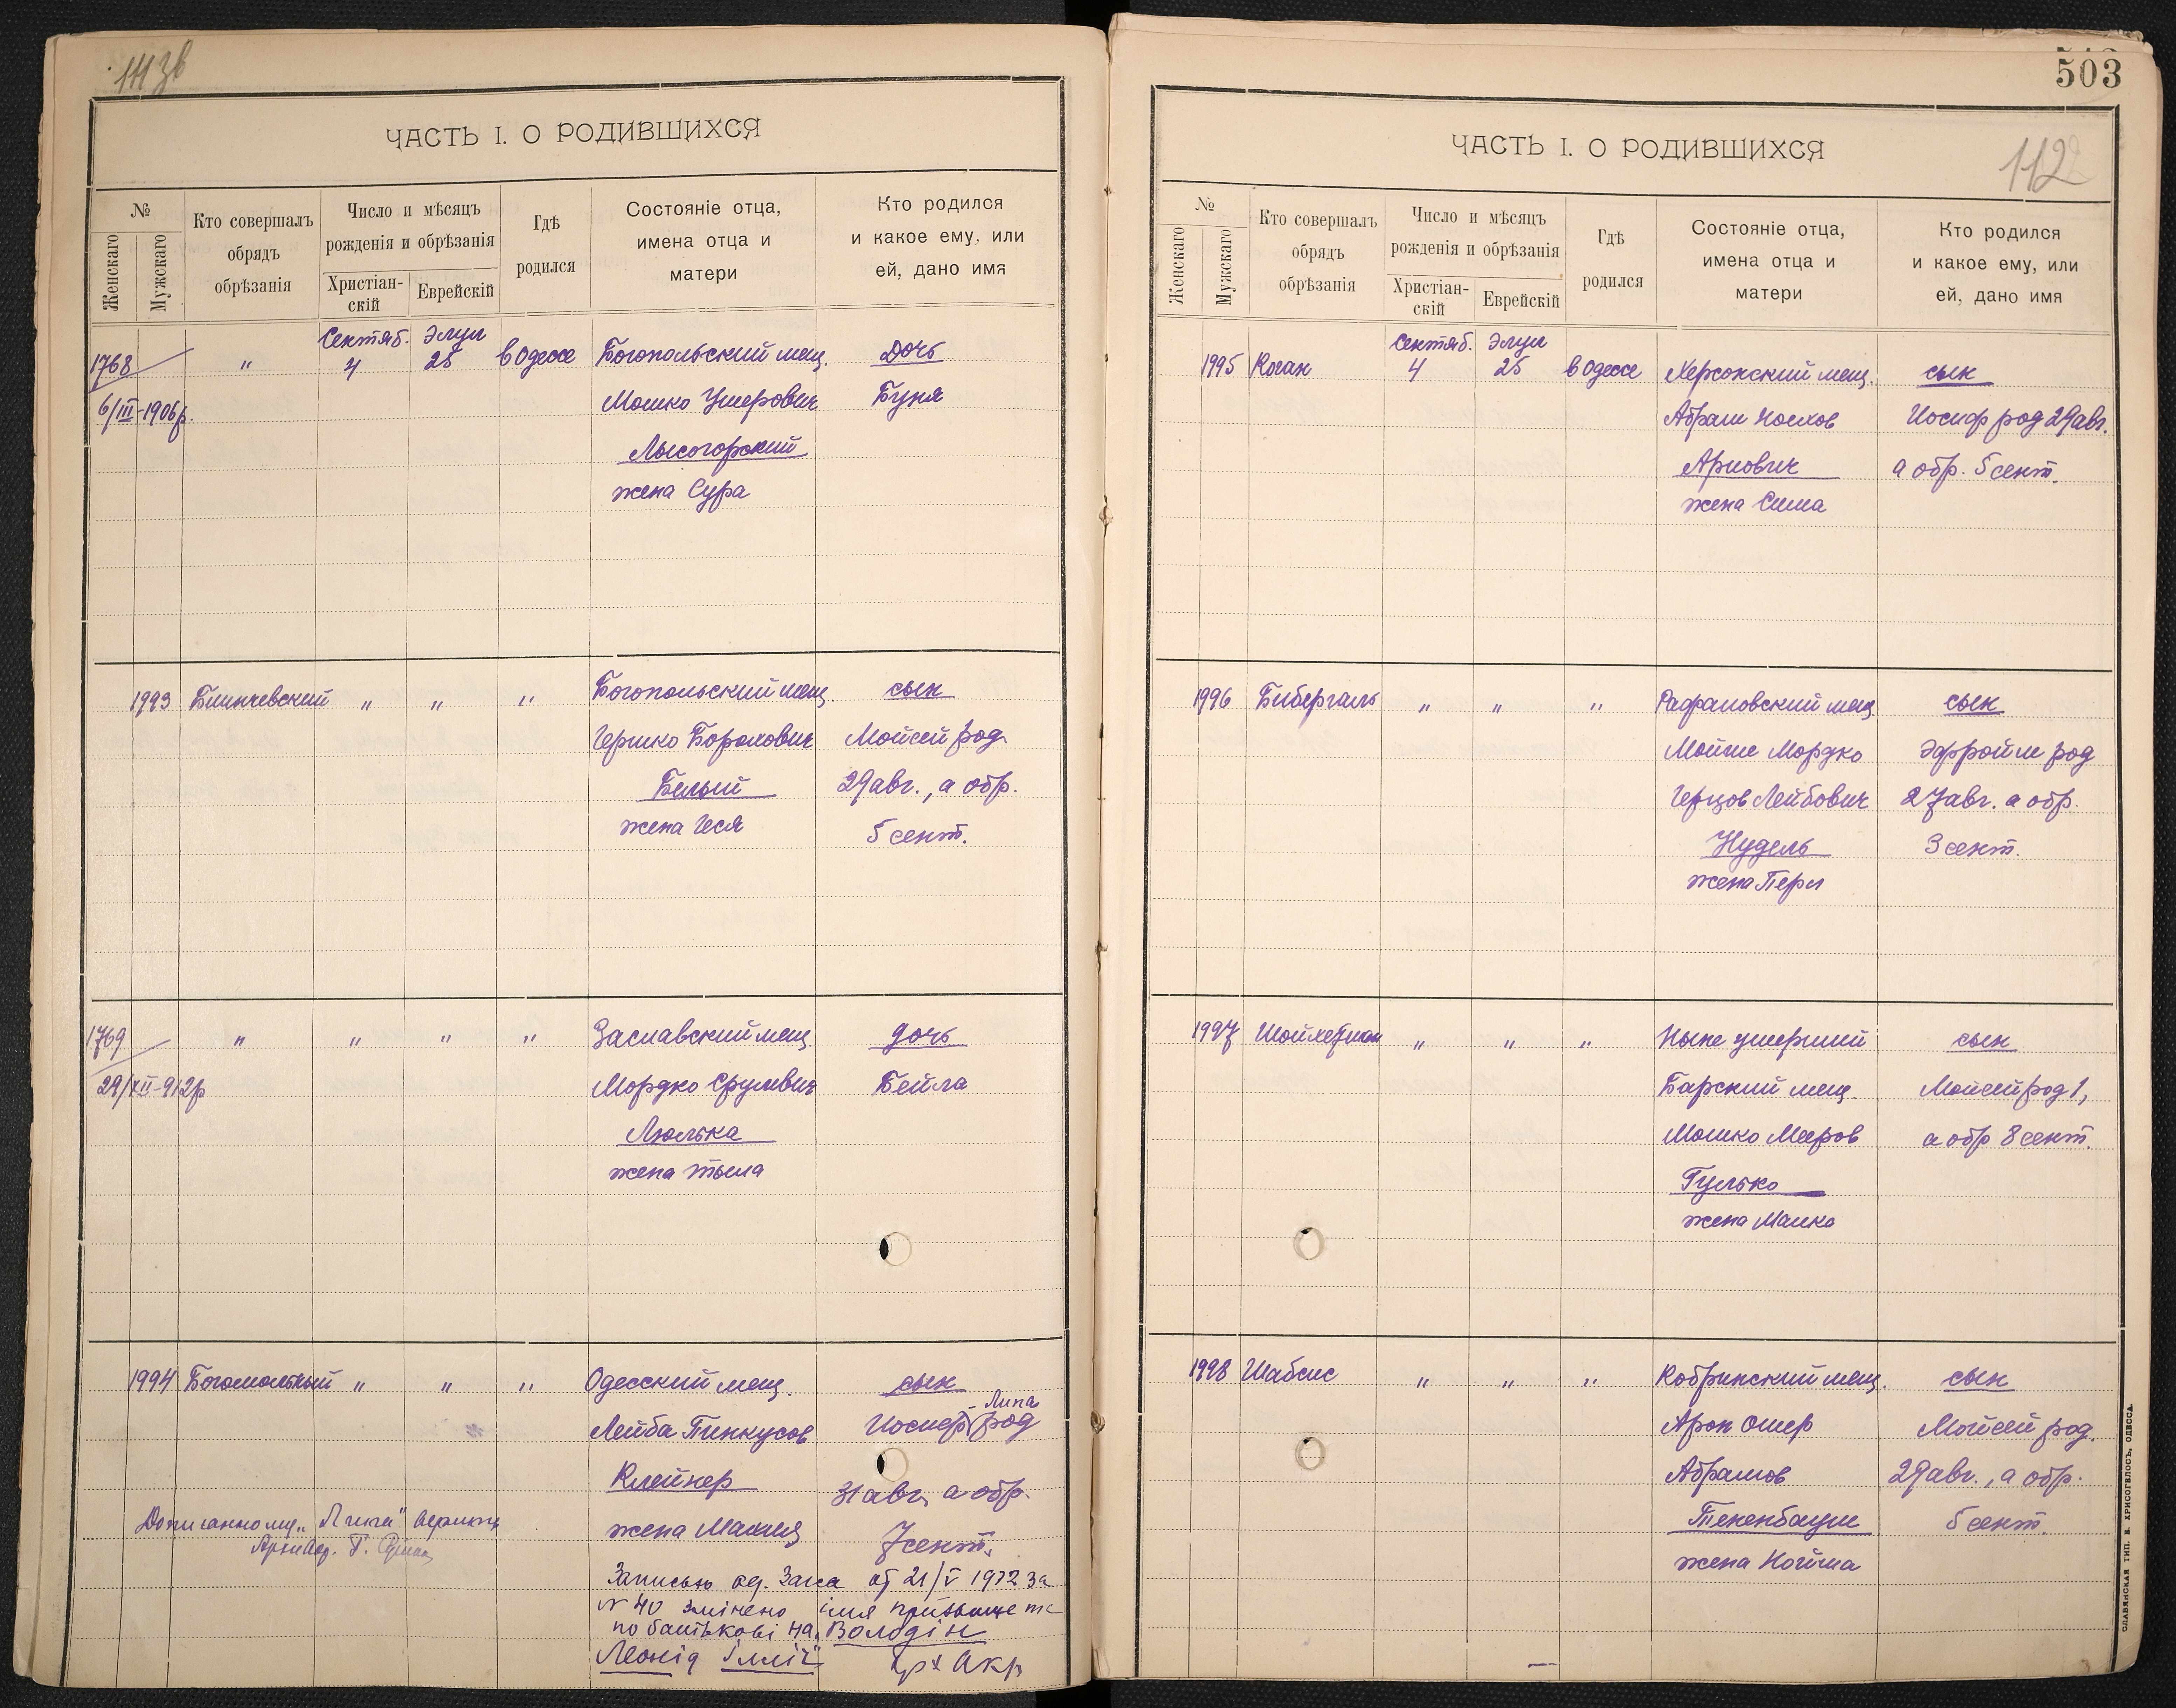 ЧАСТЬ I. О РОДИВШИХСЯ
№
Женскаго
Мужскаго
Кто совершалъ
обрядъ
обрѣзанія
Число и мѣсяцъ
рожденія и обрѣзанія
Христіан-
скій
Еврейскій
Гдѣ
родился
Состояніе отца,
имена отца и
матери
Кто родился
и какое ему, или
ей, дано имя
Сентяб. Элул
1768 " 4 25 в Одессе Богопольский мещ. Дочь
6/III-1906р Мошко Ушерович Буня
Лысогорский
жена Сура
1993 " " " Богопольский мещ. сын
Гершко Борохович Мойсей род
Белый 29 авг., а обр.
жена Геся 5 сент.
1769 " " " " Заславский мещ. дочь
29/XII-912р Мордко Срулевич Бейла
Люлька
жена
1994 Богомольный " " " Одесский мещ. сын
- Липа
Лейба Пинкусов Иосиф род
Клейнер 31 авг, а обр.
жена 7 сент.
Записью од. Загса от 21/V 1972 за
N 40 змінено імя прізвище та
по батькові на „Володін
Леонід Ілліч"
503
112
ЧАСТЬ I. О РОДИВШИХСЯ
№
Женскаго
Мужскаго
Кто совершалъ
обрядъ
обрѣзанія
Число и мѣсяцъ
рожденія и обрѣзанія
Христіан-
скій
Еврейскій
Гдѣ
родился
Состояніе отца,
имена отца и
матери
Кто родился
и какое ему, или
ей, дано имя
Сентяб. Элул
1995 Коган 4 25 в Одессе Херсонский мещ. сын
Абрам Иосиф род 29 авг.
Арнович а обр. 5 сент.
жена Сима
1996 Бибергаль " " " мещ. сын
Мойше Мордко Эфройм род
Герцов Лейбович 27 авг. а обр.
Нудель 3 сент.
жена Перл
1997 " " " Ныне умерший сын
Барский мещ. Мойсей род 1,
Мошко Мееров а обр 8 сент.
Гулько
жена
1998 Шабсис " " " Кобринский мещ. сын
Арон Ошер Мойсей род.
Абрамов 29 авг., а обр.
Тененбаум 5 сент.
жена
СЛАВЯНСКАЯ ТИП. В. ХРИСОГЕЛОСЪ, ОДЕССА.